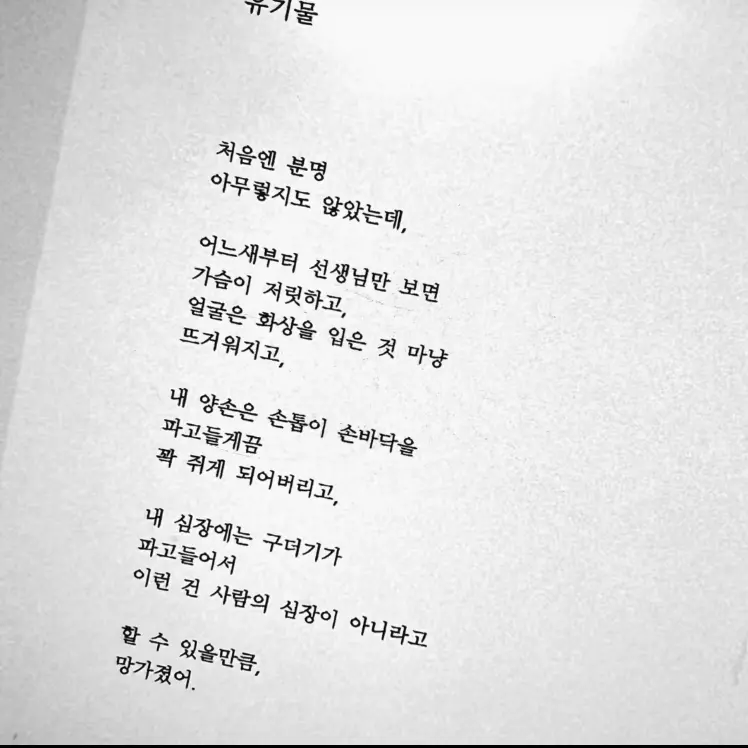 유기물
처음엔 분명
아무렇지도 않았는데,
어느새부터 선생님만 보면
가슴이 저릿하고,
얼굴은 화상을 입은 것 마냥
뜨거워지고,
내 양손은 손톱이 손바닥을
파고들게끔
꽉 쥐게 되어버리고,
내 심장에는 구더기가
파고들어서
이런 건 사람의 심장이 아니라고
할 수 있을만큼,
망가졌어.